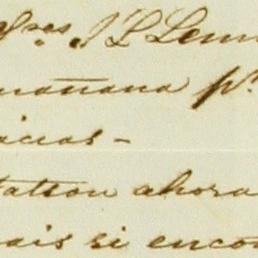 J L Lenn
mañana pr
acias-
tation ahora
ais si encon